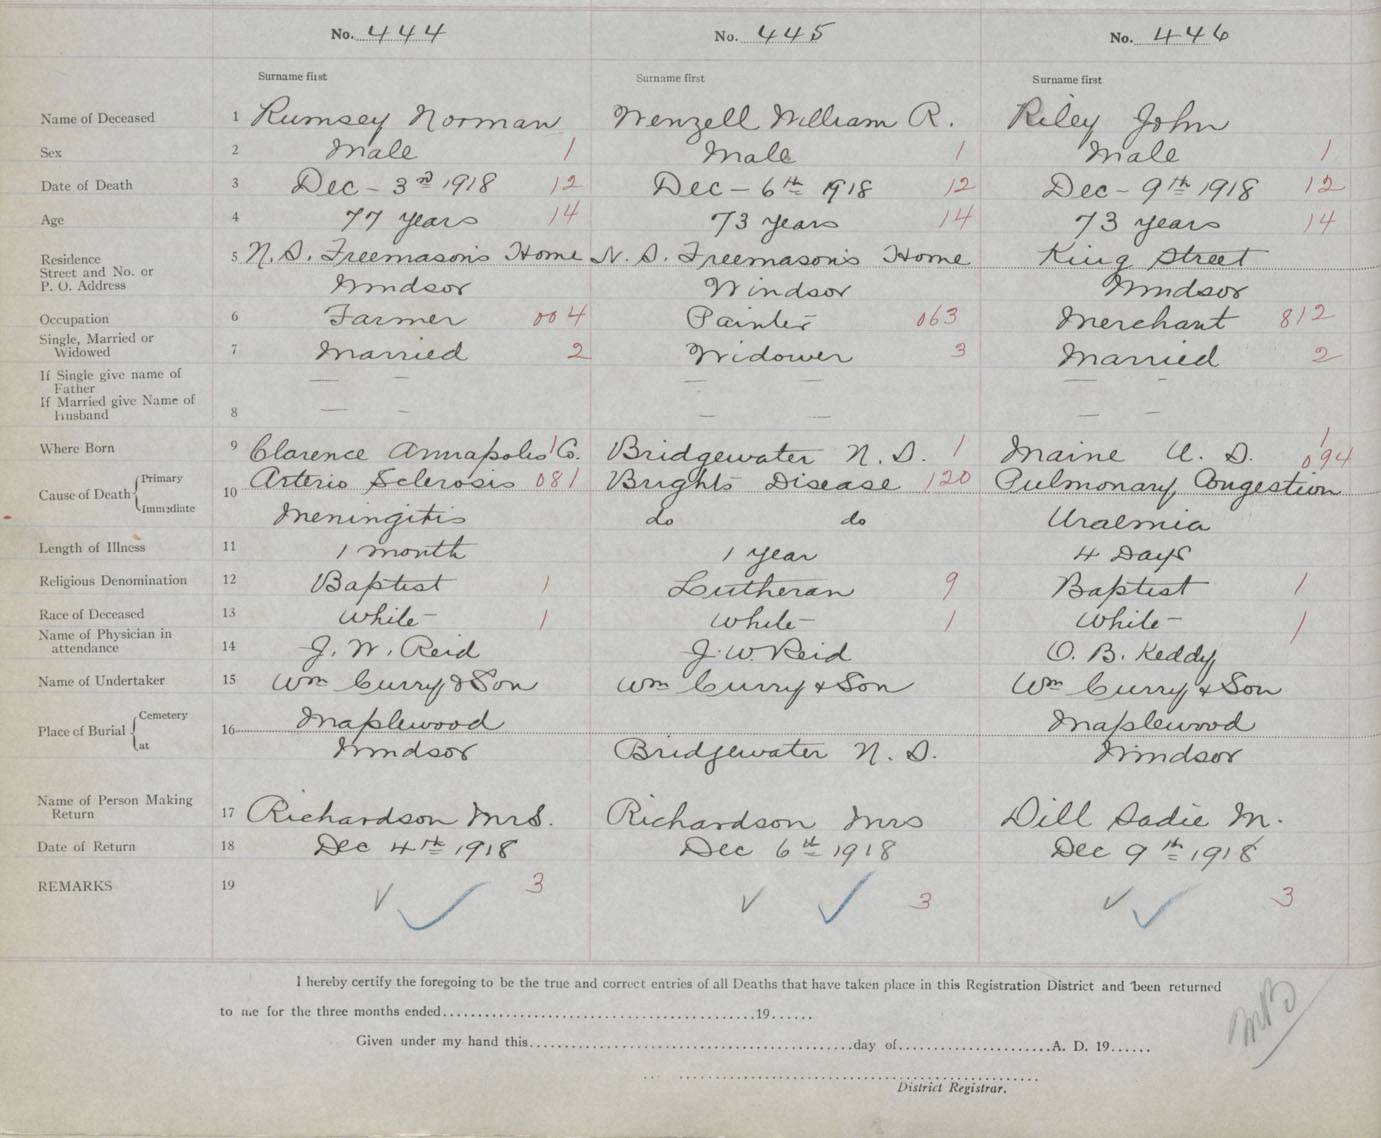 No. 444 No. 445 No. 446
Surname first Surname first Surname first
Name of Deceased 1 Rumsey Norman Wenzell William R. Riley John
Sex 2 Male 1 Male 1 Male 1
Date of Death 3 Dec - 3rd 1918 12 Dec - 6th 1918 12 Dec - 9th 1918 12
Age 4 77 years 14 73 years 14 73 years 14
Residence 5 N.S. Freemason's Home N.S. Freemason's Home King Street
Street and No. or
P. O. Address Windsor Windsor Windsor
Occupation 6 Farmer 004 Painter 063 Merchant 812
Single, Married or
Widowed 7 Married 2 Widower 3 Married 2
If Single give name of — — — — — —
Father
If Married give Name of
Husband 8 — — — — — —
Where Born 9 Clarence Annapolis 1 Co. Bridgewater N.S. 1 Maine U.S. 1 094
Primary Arterio Sclerosis 081 Brights Disease 120 Pulmonary Congestion
Cause of Death 10
Immediate Meningitis do do Uraemia
Length of Illness 11 1 month 1 year 4 Days
Religious Denomination 12 Baptist 1 Lutheran 9 Baptist 1
Race of Deceased 13 White 1 White 1 White 1
Name of Physician in
attendance 14 J. W. Reid J. W. Reid O. B. Keddy
Name of Undertaker 15 Wm Curry & Son Wm Curry & Son Wm Curry & Son
Cemetery Maplewood Maplewood
Place of Burial 16
at Windsor Bridgewater N.S. Windsor
Name of Person Making
Return 17 Richardson Mrs. Richardson Mrs Dill Sadie M.
Date of Return 18 Dec 4th 1918 Dec 6th 1918 Dec 9th 1918
REMARKS 19 ✓ ✓ 3 ✓ ✓ 3 ✓ ✓ 3
I hereby certify the foregoing to be the true and correct entries of all Deaths that have taken place in this Registration District and been returned
to me for the three months ended..........19......
Given under my hand this..........day of..........A. D. 19......
District Registrar.